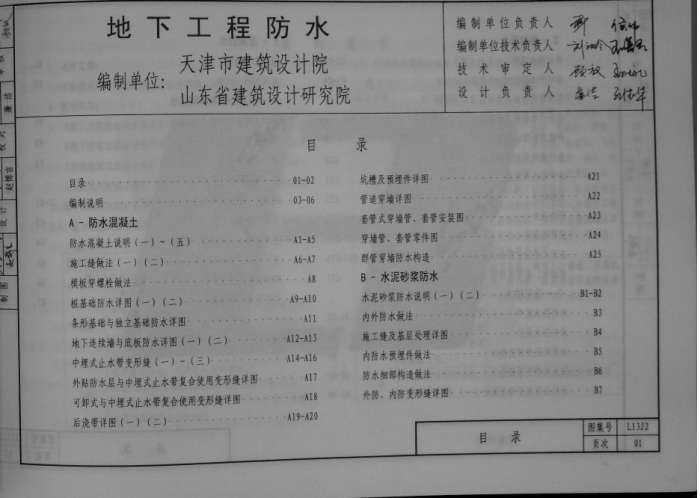 地下工程防水
编制单位: 天津市建筑设计院
山东省建筑设计研究院
编制单位负责人
编制单位技术负责人
技术审定人
设计负责人
目 录
目录 01-02
编制说明 03-06
A - 防水混凝土
防水混凝土说明(一)~(五) A1-A5
施工缝做法(一)(二) A6-A7
模板穿螺栓做法 A8
板基础防水详图(一)(二) A9-A10
条形基础与独立基础防水详图 A11
地下连续墙与底板防水详图(一)(二) A12-A13
中埋式止水带变形缝(一)~(三) A14-A16
外贴防水层与中埋式止水带复合使用变形缝详图 A17
可卸式与中埋式止水带复合使用变形缝详图 A18
后浇带详图(一)(二) A19-A20
坑槽及预埋件详图 A21
管道穿墙详图 A22
套管式穿墙管、套管安装图 A23
穿墙管、套管零件图 A24
群管穿墙防水构造 A25
B - 水泥砂浆防水
水泥砂浆防水说明(一)(二) B1-B2
内外防水做法 B3
施工缝及基层处理详图 B4
内防水预埋件做法 B5
防水细部构造做法 B6
外防、内防变形缝详图 B7
目 录
图集号 L1322
页次 01
校对
设计
制图